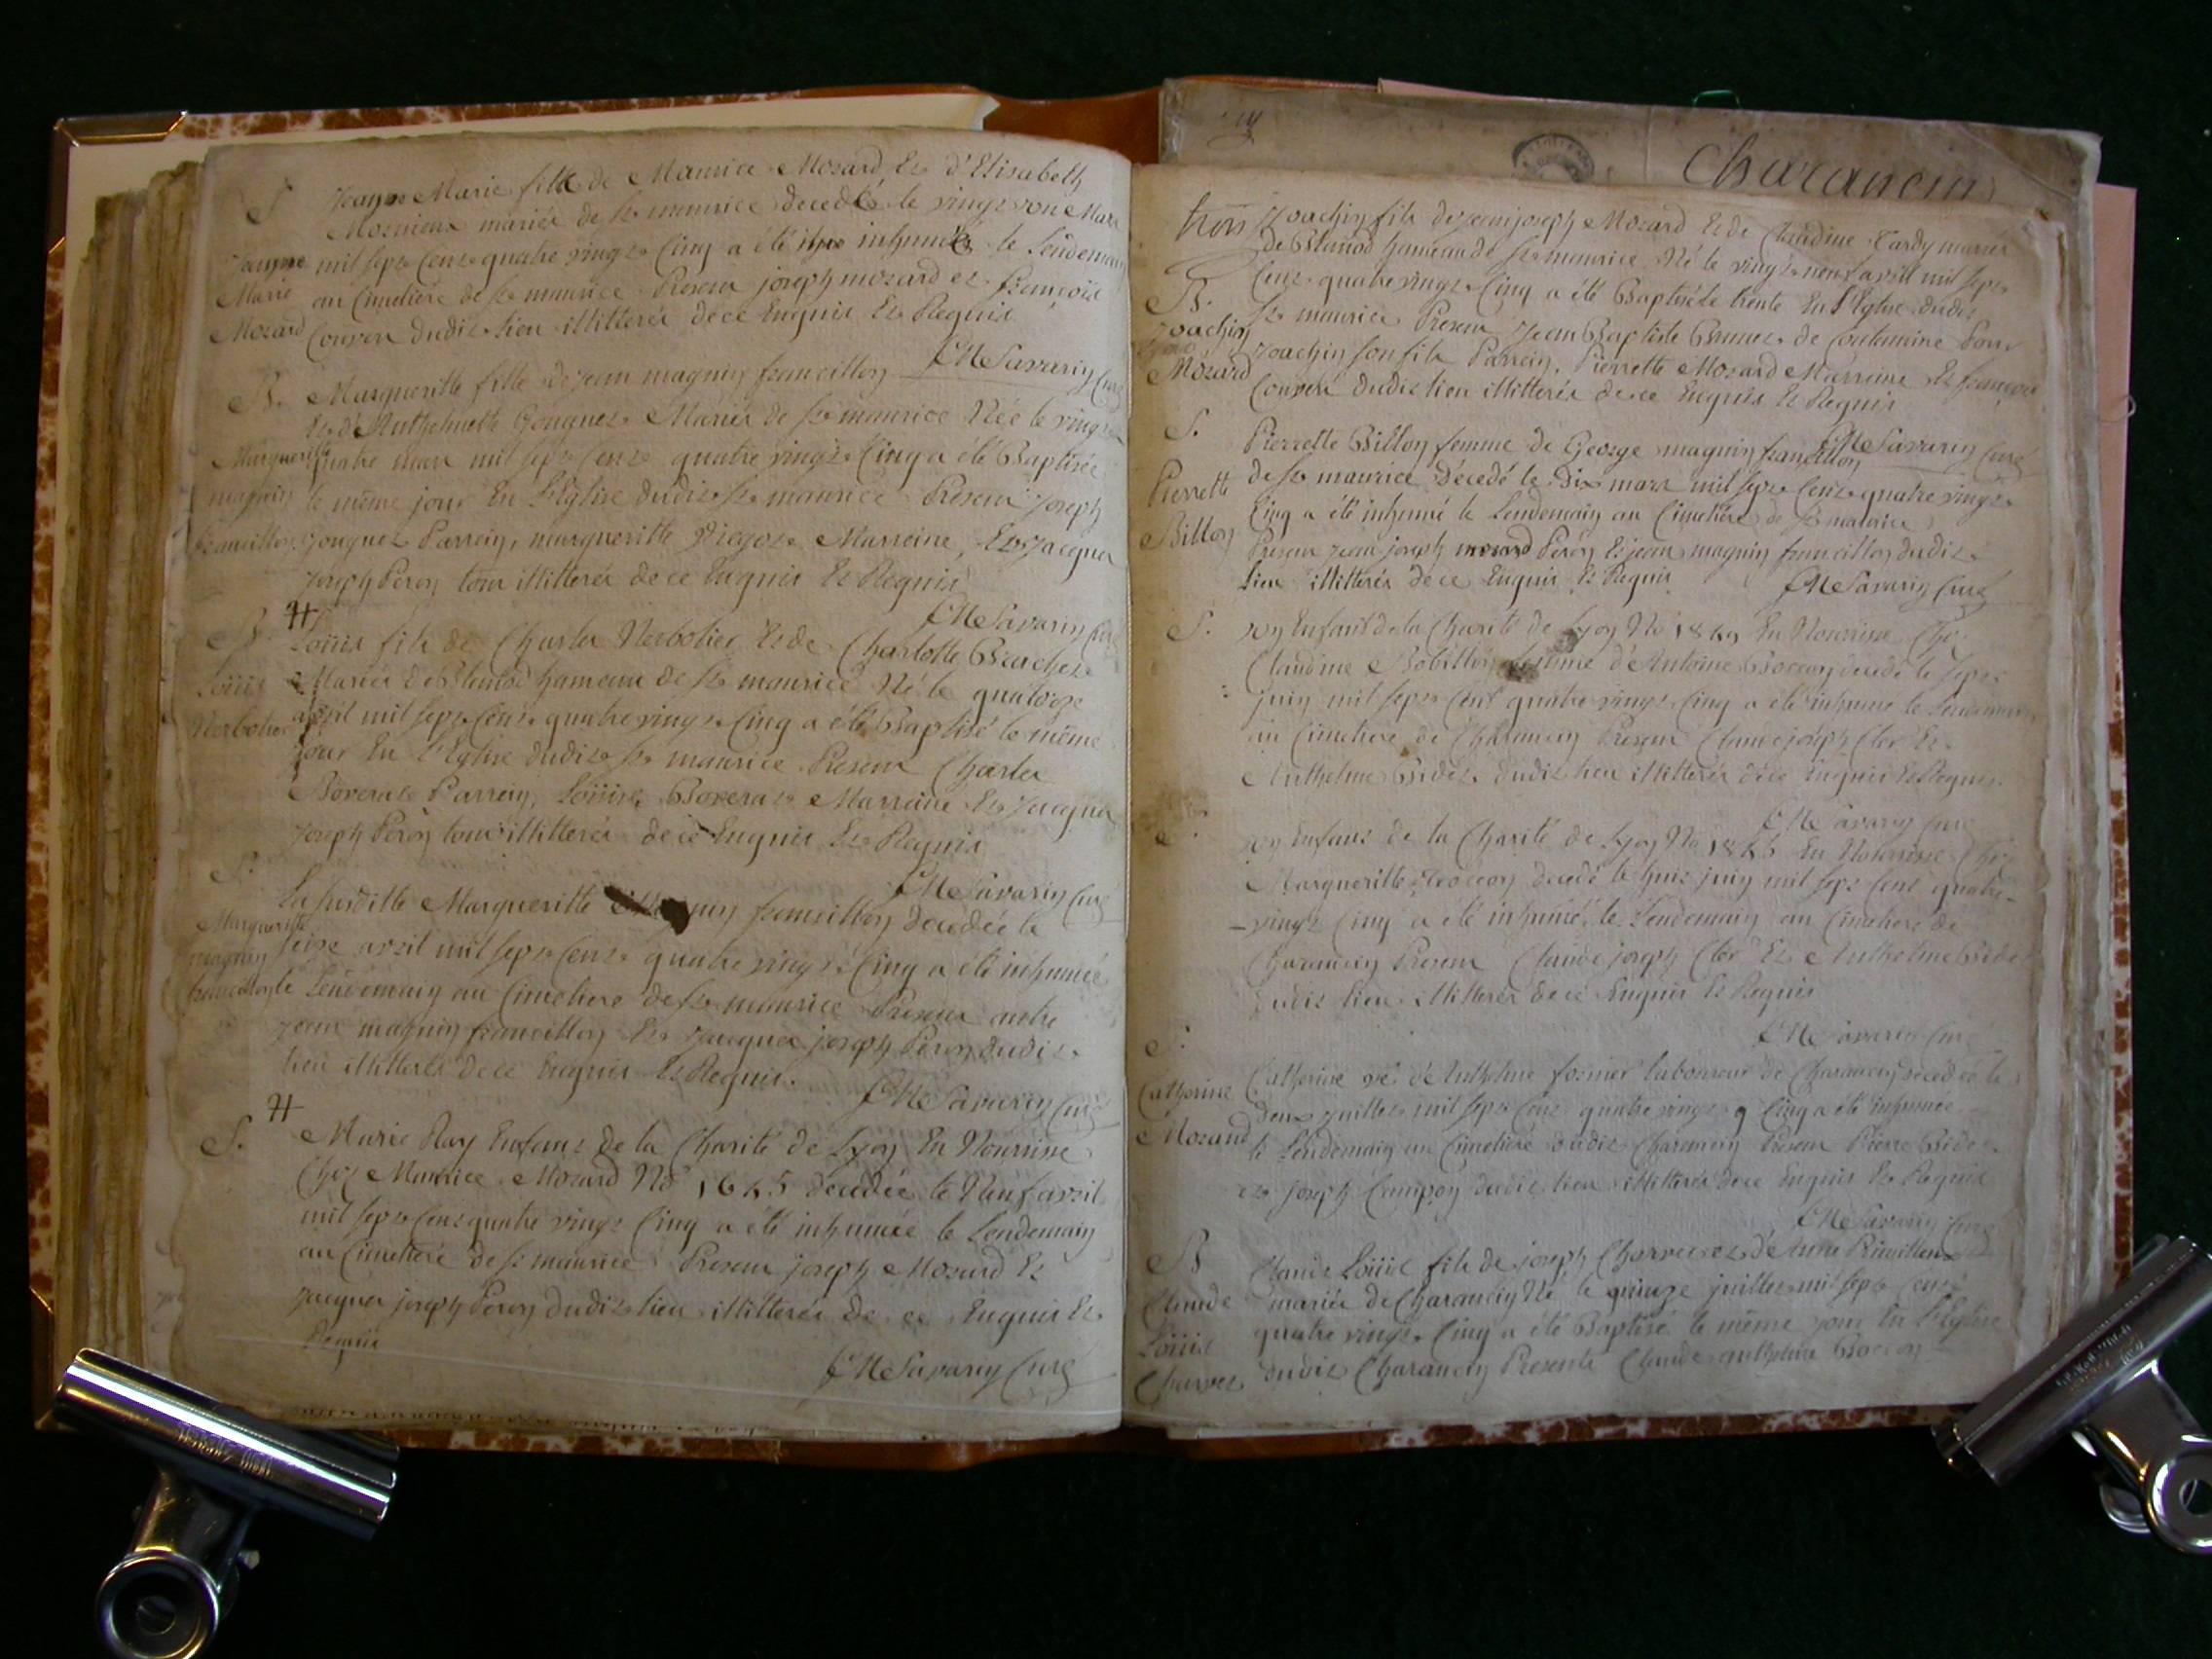 S
Jeanne
Marie
Mozard
Jeanne Marie fille de Maurice Mozard Et d'Elisabeth
mariés de St maurice decedée le vingt un Mars
mil sept Cent quatre vingt Cinq a été inhumée le Lendemain
au Cimetière de St maurice Presens joseph mozard et françois
Convers dudit Lieu illitterés de ce Enquis Et Requis
Savarin Curé
B.
Margueritte
magnin
francillon
Margueritte fille de jean magnin francillon
Et d'Anthelmette Gouguet Mariés de St maurice Née le vingt
quatre mars mil sept Cent quatre vingt Cinq a été Baptisée
le même jour En L'Eglise dudit St maurice Presens joseph
Gouguet Parrein, margueritte Marreine, Et jacques
joseph Peron tous illitterés de ce Enquis Et Requis
Savarin Curé
B.
Loüis
Nerbolier
Loüis fils de Charles Nerbolier Et de Charlotte
Mariés de hameau de St maurice Né le quatorze
avril mil sept Cent quatre vingt Cinq a été Baptisé le même
jour En L'Eglise dudit St maurice Presens Charles
Parrein, Loüise Marreine Et jacques
joseph Peron tous illitterés de ce Enquis Et Requis
Savarin Curé
S.
Margueritte
magnin
francillon
La susditte Margueritte francillon decedée le
seize avril mil sept Cent quatre vingt Cinq a été inhumée
le Lendemain au Cimetiere de St maurice Presens autre
jean magnin francillon Et jacques joseph Peron dudit
lieu illitterés de ce Enquis Et Requis.
Savarin Curé
S.
Marie Ray Enfant de la Charité de Lyon En Nourrisse
Chez Maurice Mozard No decedée le Neuf avril
mil sept Cent quatre vingt Cinq a été inhumée le Lendemain
au Cimetiere de St maurice Presens joseph Mozard Et
jacques joseph Peron dudit lieu illitterés de ce Enquis Et
Requis
Savarin Curé
Charancin
trois
B.
joachin
Mozard
joachin fils de jean joseph Mozard Et de Claudine Tardy mariés
de hameau de St maurice Né le vingt neuf avril mil sept
Cent quatre vingt Cinq a été Baptisé le trente En L'Eglise dudit
St maurice Presens Jean Baptiste Brunet de Contamine Pour
joachin son fils Parrein, Pierrette Mozard Marreine Et françois
Convers dudit lieu illitterés de ce Enquis Et Requis
Savarin Curé
S.
Pierrette
Billon
Pierrette Billon femme de George magnin francillon
de St maurice Décedé le Dix mars mil sept Cent quatre vingt
Cinq a été inhumé le Lendemain au Cimetiére de St maurice
Presens jean joseph mozard Peron Et jean magnin francillon dudit
Lieu illitterés de ce Enquis Et Requis
Savarin Curé
S.
un Enfant de la Charité de Lyon No En Nourrisse Chez
Claudine femme d'Antoine decedé le sept
juin mil sept Cent quatre vingt Cinq a été inhumé le Lendemain
au Cimetiere de Charancin Presens Claude joseph Cler Et
Anthelme Bidet dudit lieu illitterés de ce Enquis Et Requis
Savarin Curé
un Enfant de la Charité de Lyon No En Nourrisse Chez
Margueritte decedé le huit juin mil sept Cent quatre
vingt Cinq a été inhumé le Lendemain au Cimetiere de
Charancin Presens Claude joseph Cler Et Anthelme Bidet
dudit lieu illitterés de ce Enquis Et Requis
Savarin Curé
S.
Catherine
Mozard
Catherine de Anthelme fornier laboureur de Charancin decedée le
deux juillet mil sept Cent quatre vingt Cinq a été inhumée
le Lendemain au Cimetiere dudit Charancin Presens Pierre Bidet
et joseph dudit lieu illitterés de ce Enquis Et Requis
Savarin Curé
B
Claude
Loüis
Charvet
Claude Loüis fils de joseph Charvet et d'Anne
mariés de Charancin Né le quinze juillet mil sept Cent
quatre vingt Cinq a été Baptisé le même jour En L'Eglise
dudit Charancin Presents Claude Anthelme